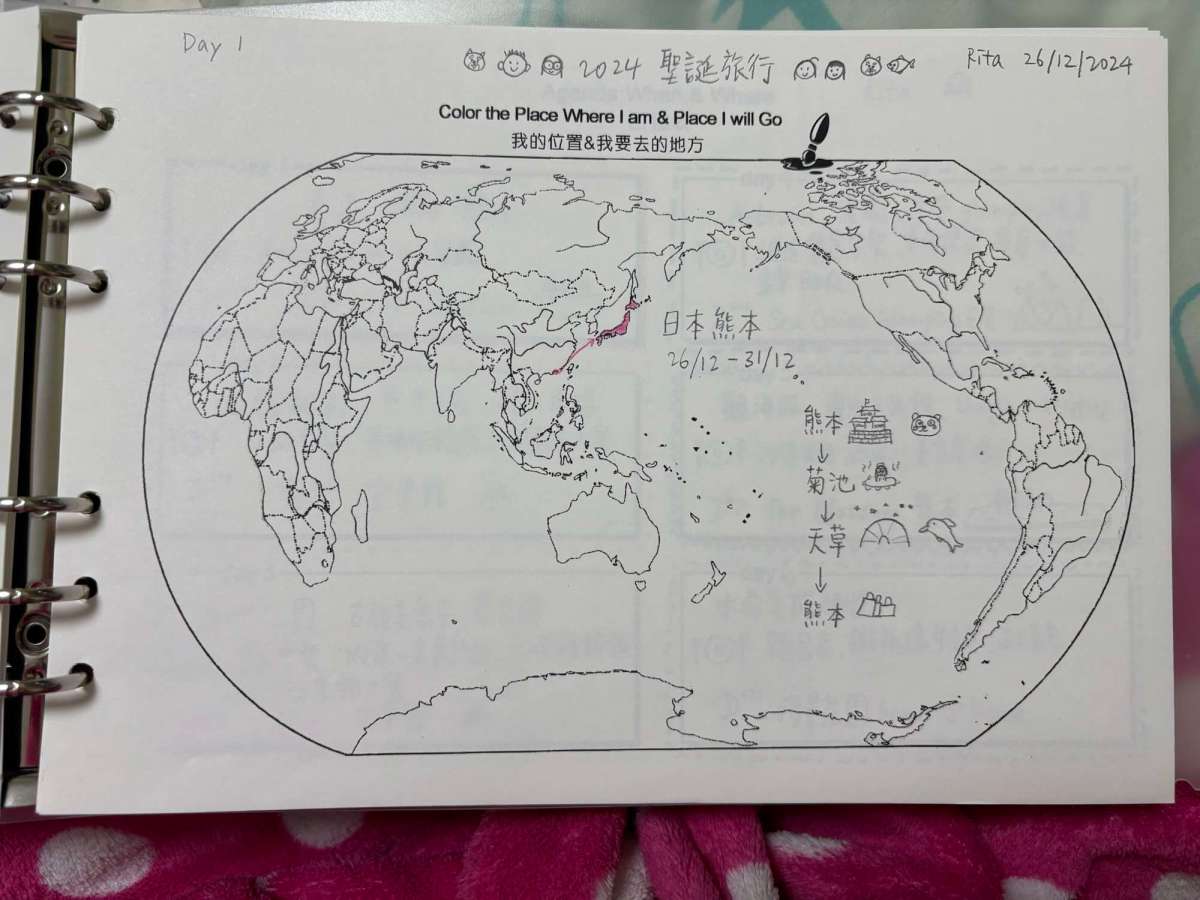 Day 1
2024 聖誕旅行
Rita 26/12/2024
Color the Place Where I am & Place I will Go
我的位置&我要去的地方
日本熊本
26/12-31/12
熊本
↓
菊池
↓
天草
↓
熊本